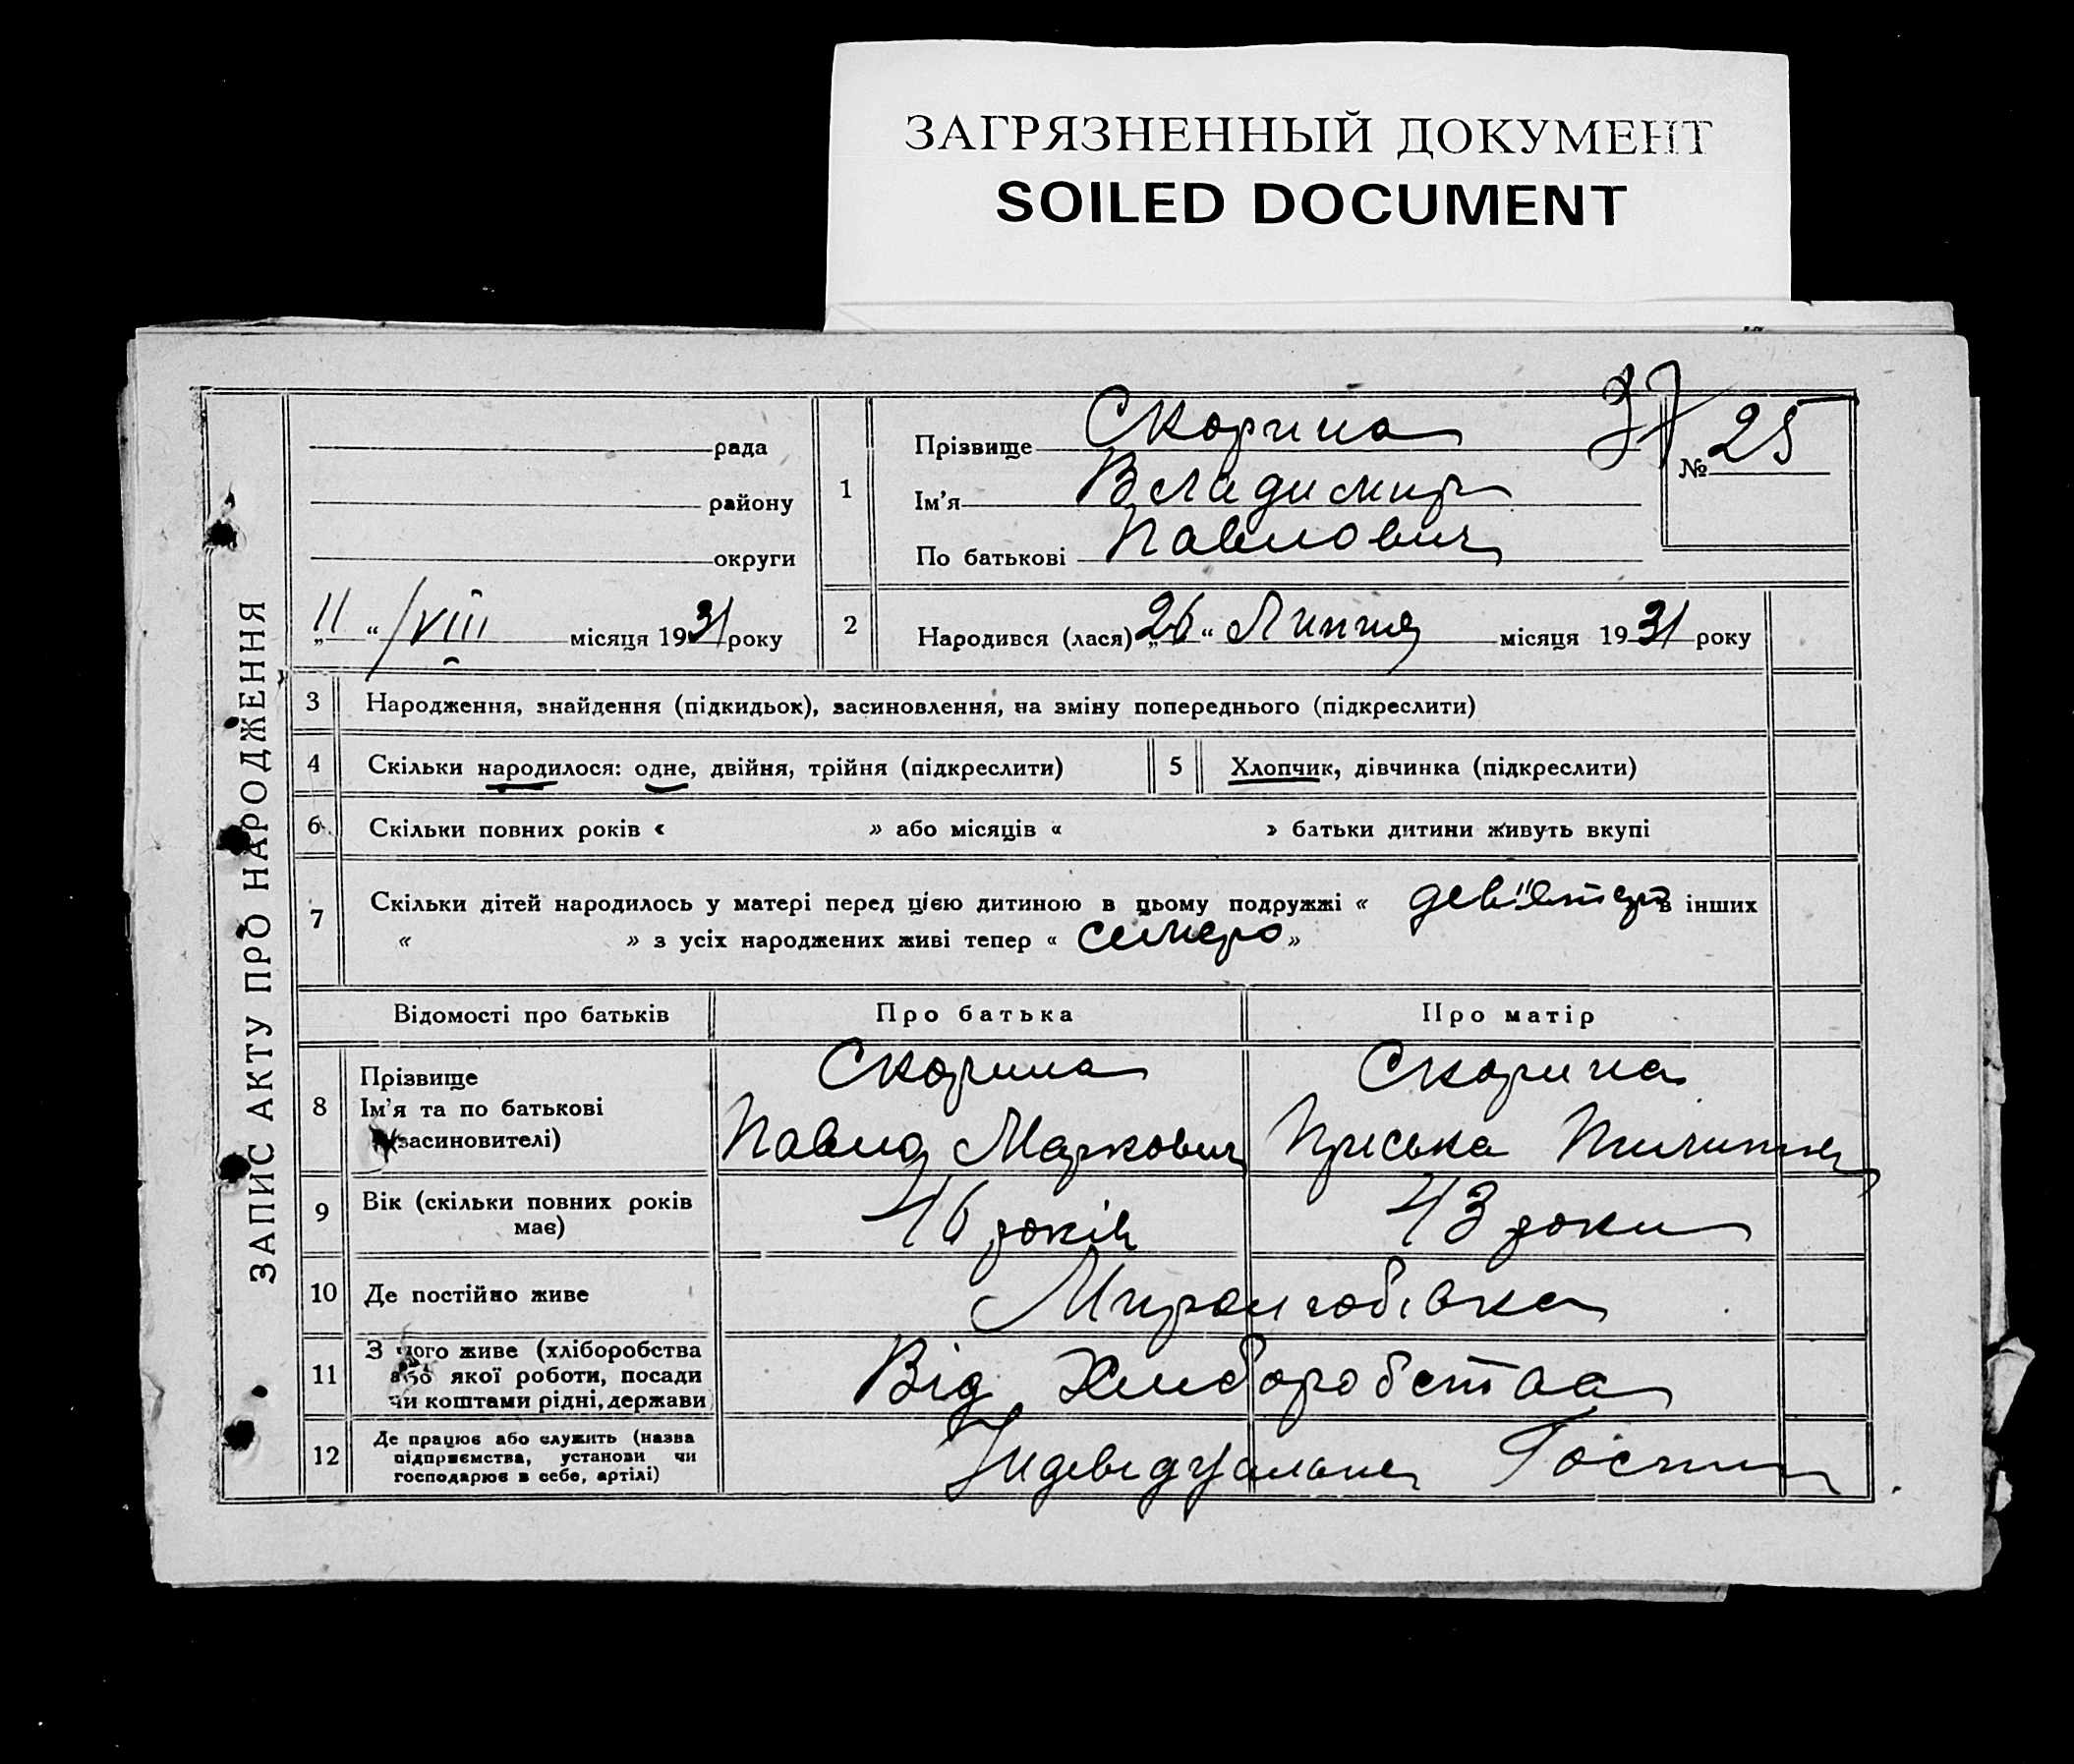 ЗАГРЯЗНЕННЫЙ ДОКУМЕНТ
SOILED DOCUMENT
ЗАПИС АКТУ ПРО НАРОДЖЕННЯ
рада
району
округи
„11“ /VIII місяця 1931 року
1
Прізвище Скорина
Ім'я Владимир
По батькові Павлович
37
№ 25
2 Народився (лася) „26“ Липня місяця 1931 року
3 Народження, знайдення (підкидьок), засиновлення, на зміну попереднього (підкреслити)
4 Скільки народилося: одне, двійня, трійня (підкреслити)
5 Хлопчик, дівчинка (підкреслити)
6 Скільки повних років « » або місяців « » батьки дитини живуть вкупі
7 Скільки дітей народилось у матері перед цією дитиною в цьому подружжі « дев'ятеро в інших
« » з усіх народжених живі тепер « семеро »
Відомості про батьків Про батька Про матір
8 Прізвище Скорина Скорина
Ім'я та по батькові Павло Маркович Пріська
(засиновителі)
9 Вік (скільки повних років має) 46 років 43 роки
10 Де постійно живе
11 З чого живе (хліборобства
або якої роботи, посади
чи коштами рідні, держави
Від Хлиборобства
12 Де працює або служить (назва
підприємства, установи чи
господарює в себе, артілі)